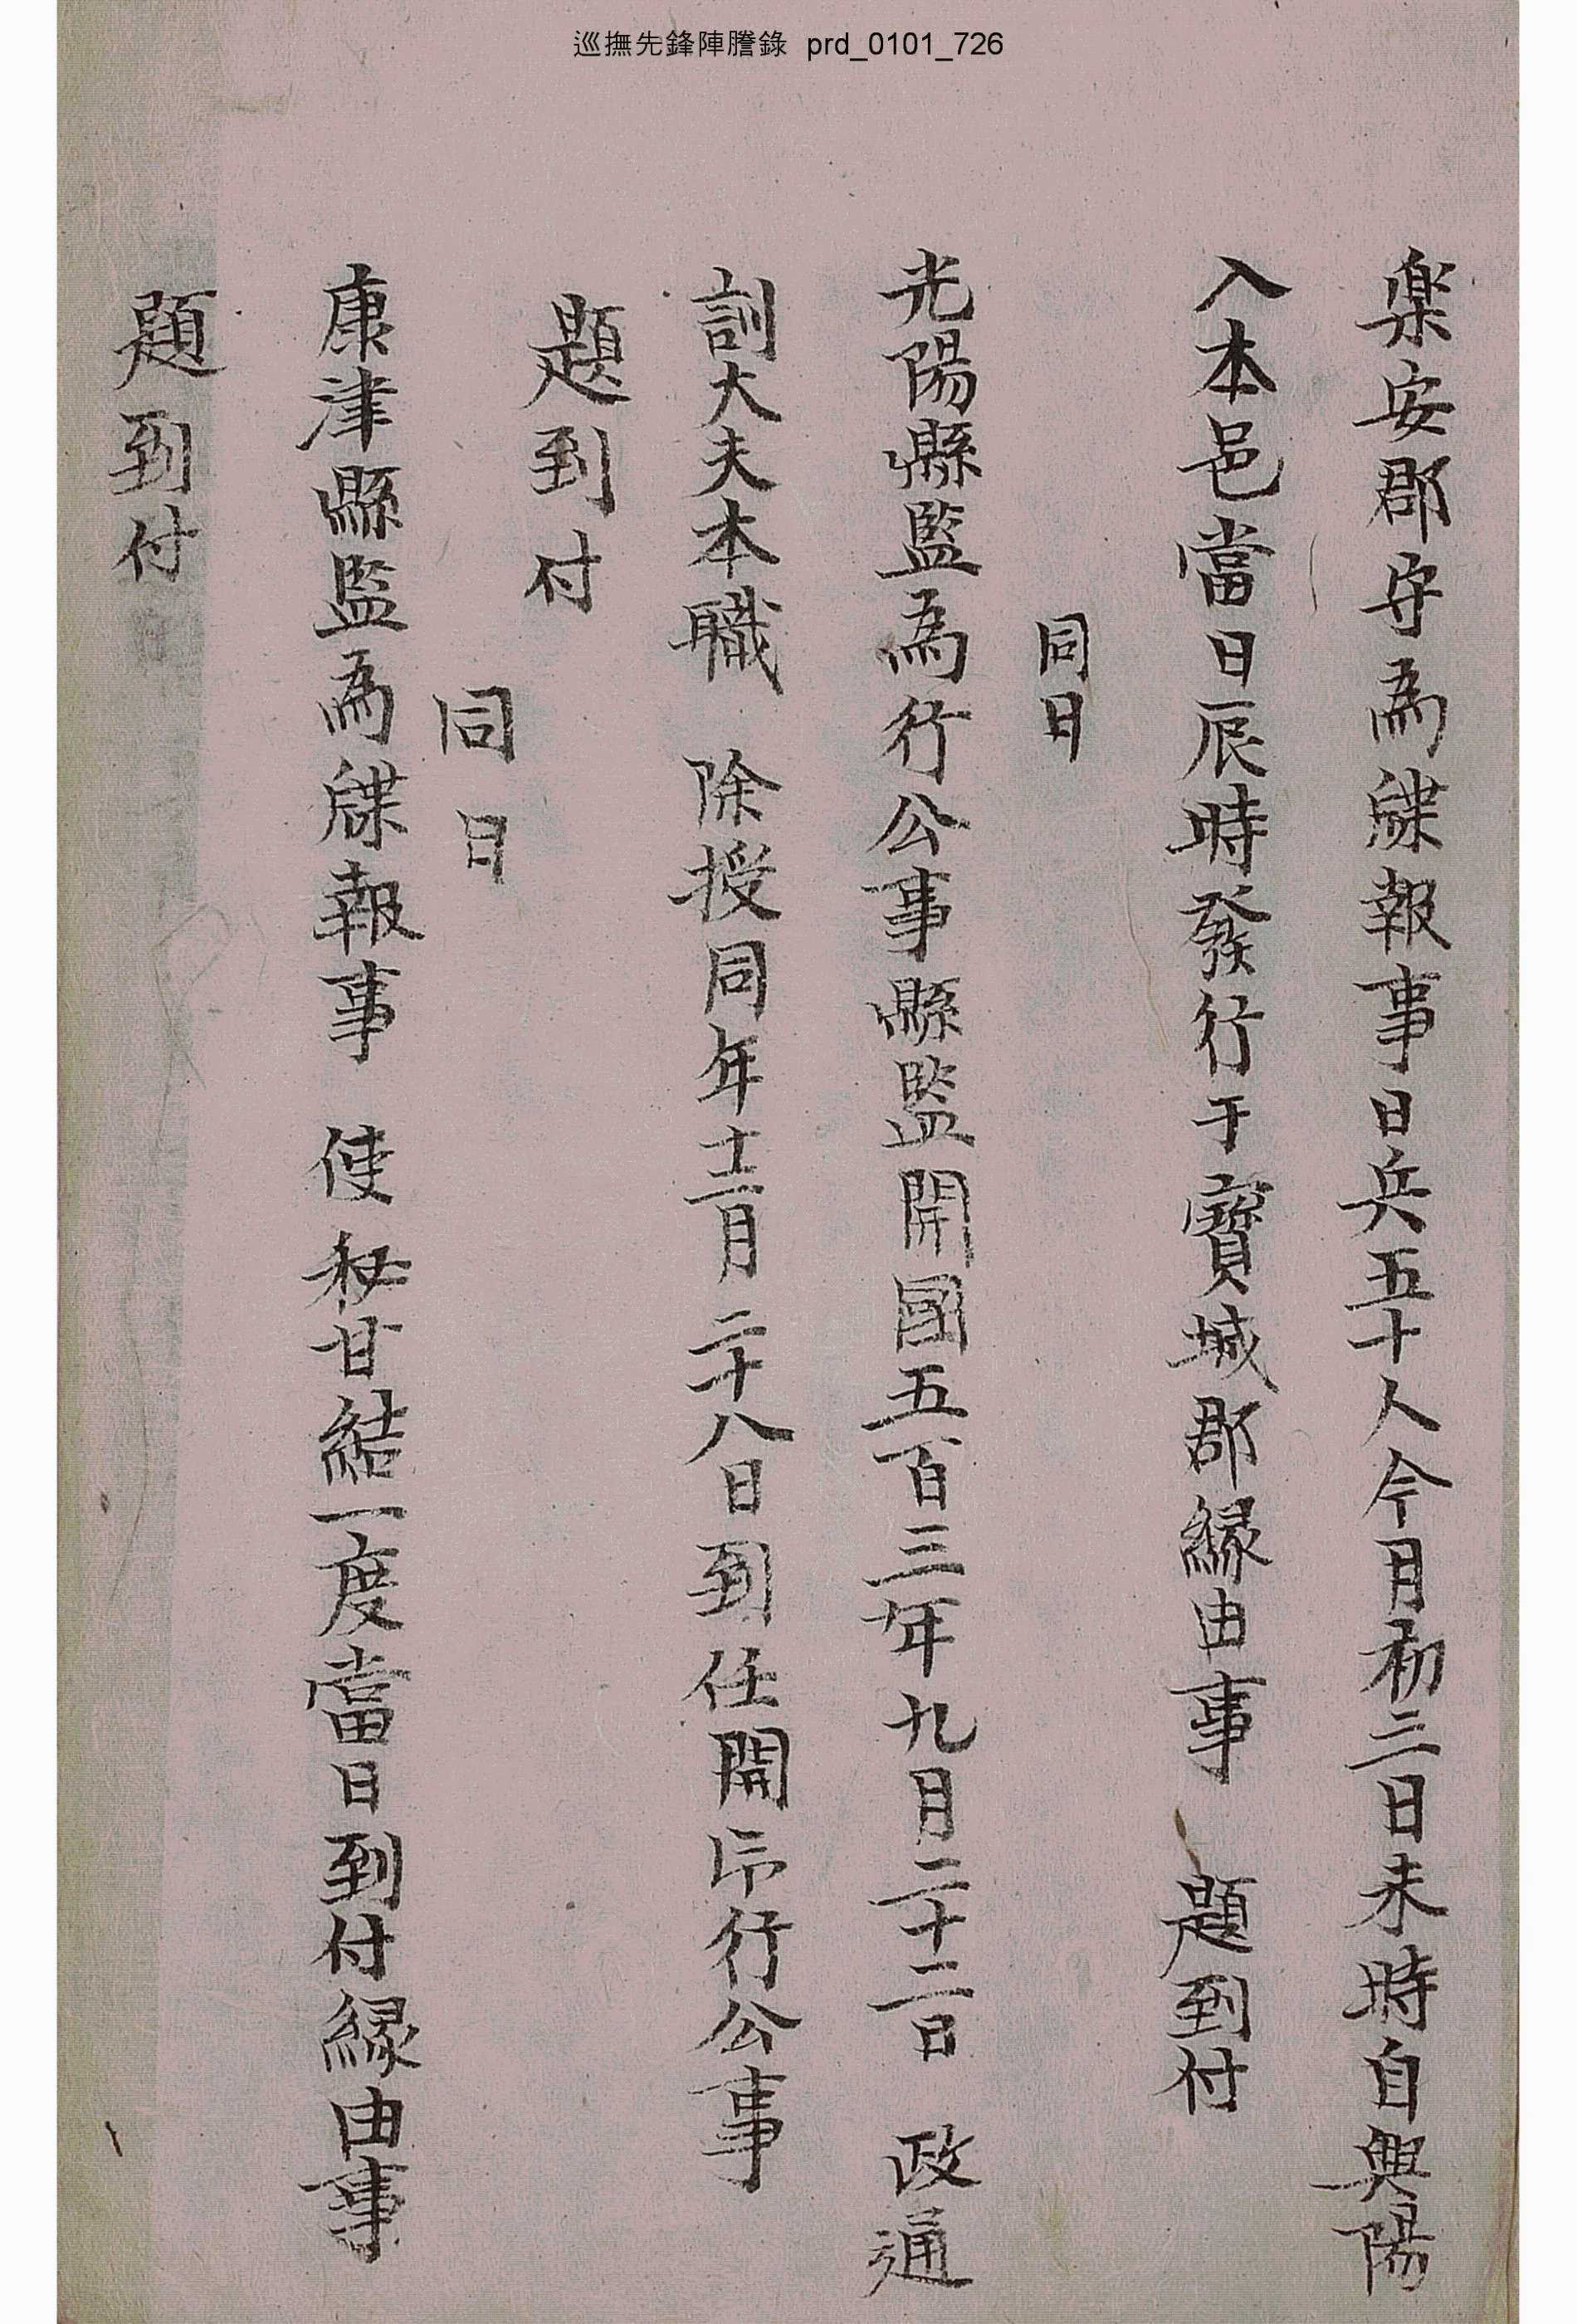 巡撫先鋒陣謄錄 prd_0101_726
楽安郡守為牒報事日兵五十人今月初三日未時自興陽
入本邑當日辰時發行于寶城郡緣由事 題到付
同日
光陽縣監為行公事縣監開國五百三年九月二十二日 政通
訓大夫本職 除授同年十二月二十八日到任開印行公事
題到付
同日
康津縣監為牒報事 使秘甘結一度當日到付緣由事
題到付